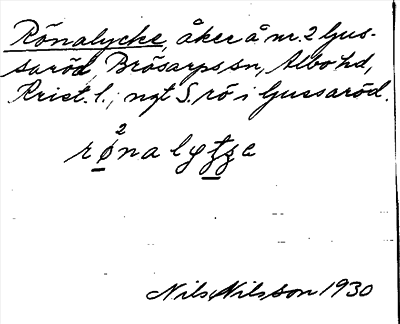 Rönalycke, åker å nr. 2 Ljus-
saröd, Brösarps sn, Albo hd,
Krist. l.; ngt S. rö i Ljussaröd.
2
rønalytʒe
Nils Nilsson 1930